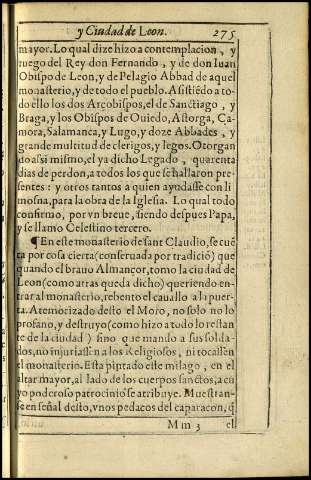 y Ciudad de Leon. 275
mayor. Lo qual dize hizo a contemplacion, y
ruego del Rey don Fernando, y de don Iuan
Obispo de Leon, y de Pelagio Abbad de aquel
monasterio, y de todo el pueblo. Asistiẽdo a to-
do ello los dos Arçobispos, el de Sanctiago, y
Braga, y los Obispos de Ouiedo, Astorga, Ça-
mora, Salamanca, y Lugo, y doze Abbades, y
grande multitud de clerigos, y legos. Otorgan
do assi mismo, el ya dicho Legado, quarenta
dias de perdon, a todos los que se hallaron pre-
sentes: y otros tantos a quien ayudasse con li
mosna, para la obra de la Iglesia. Lo qual todo
confirmo, por vn breue, siendo despues Papa,
y se llamo Celestino tercero.
¶ En este monasterio de sant Claudio, se cuẽ
ta por cosa cierta (conseruada por tradiciõ) que
quando el brauo Almançor, tomo la ciudad de
Leon (como atras queda dicho) queriendo en-
trar al monasterio, rebento el cauallo a la puer-
ta. Atemorizado desto el Moro, no solo no lo
profano, y destruyo (como hizo a todo lo restan
te de la ciudad) sino que mando a sus solda-
dos, no injuriassẽn a los Religiosos, ni tocassẽn
el monasterio. Esta pintado este milagro, en el
altar mayor, al lado de los cuerpos sanctos, a cu
yo poderoso patrocinio se atribuye. Muestran-
se en señal desto, vnos pedaços del caparaçon, q̃
Mm 3 el